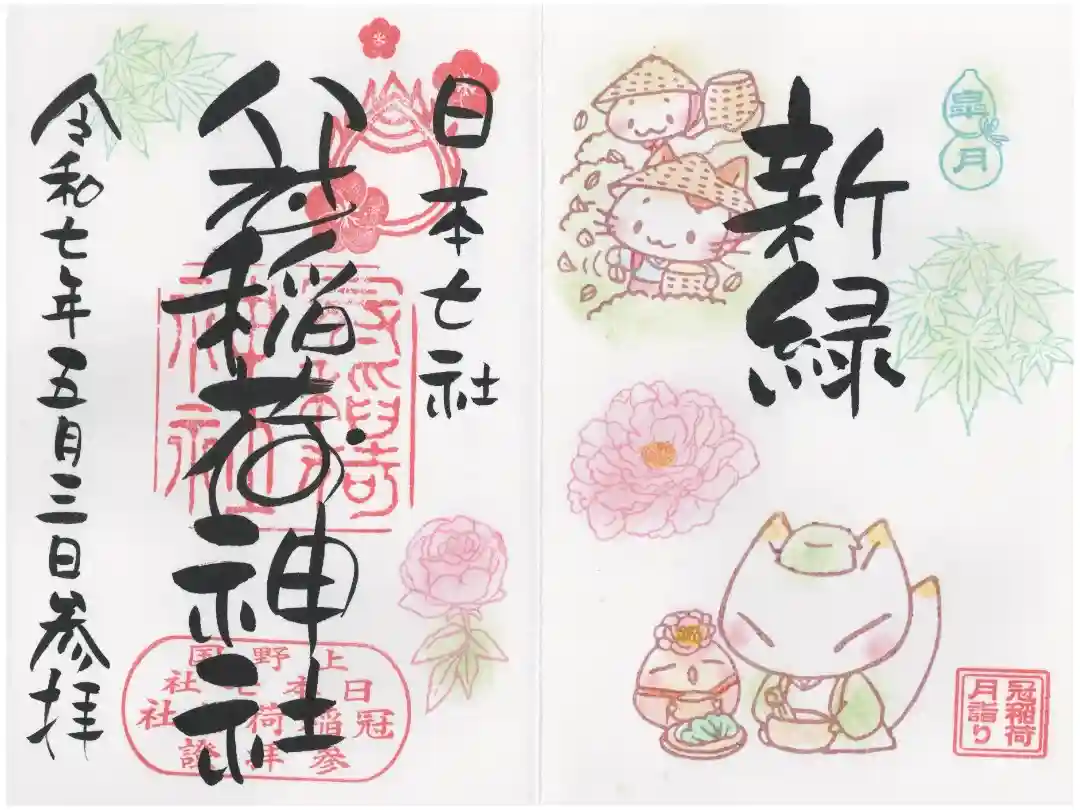 皐月
新緑
冠稲荷
月詣り
日本七社
冠稲荷神社
令和七年五月三日参拝
上野国
日本七社
冠稲荷神社
參拝證